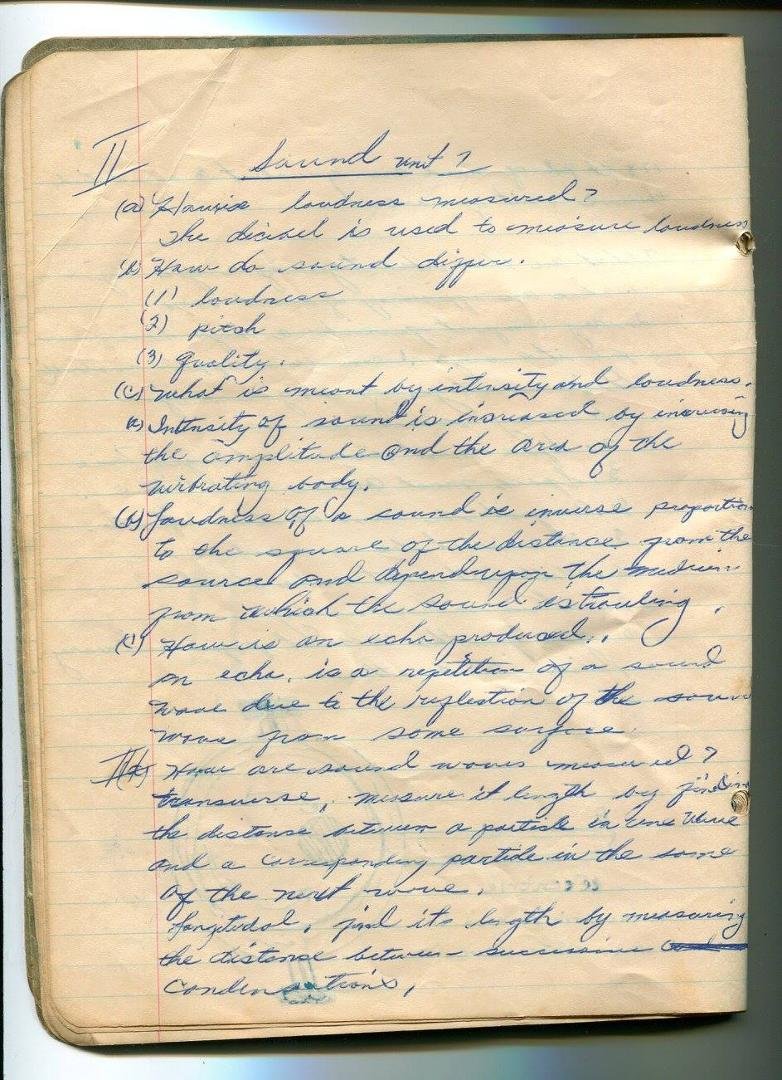 II Sound unit 7
(a) How is loudness measured?
The decibel is used to measure loudness
(b) How do sound differ.
(1) loudness
(2) pitch
(3) quality.
(c) What is meant by intensity and loudness.
(a) Intensity of sound is increased by increasing
the amplitude and the area of the
vibrating body.
(b) Loudness of a sound is inverse proportion
to the square of the distance from the
source and depend upon the medium
from which the sound is traveling.
How is an echo produced.
An echo. is a repetition of a sound
wave due to the reflection of the soun
wave from some surface.
How are sound waves measured?
transverse, measure it length by findin
the distance between a particle in one wave
and a corresponding particle in the same
of the next wave.
Longitudal, find its length by measuring
the distance between successive
condensations,